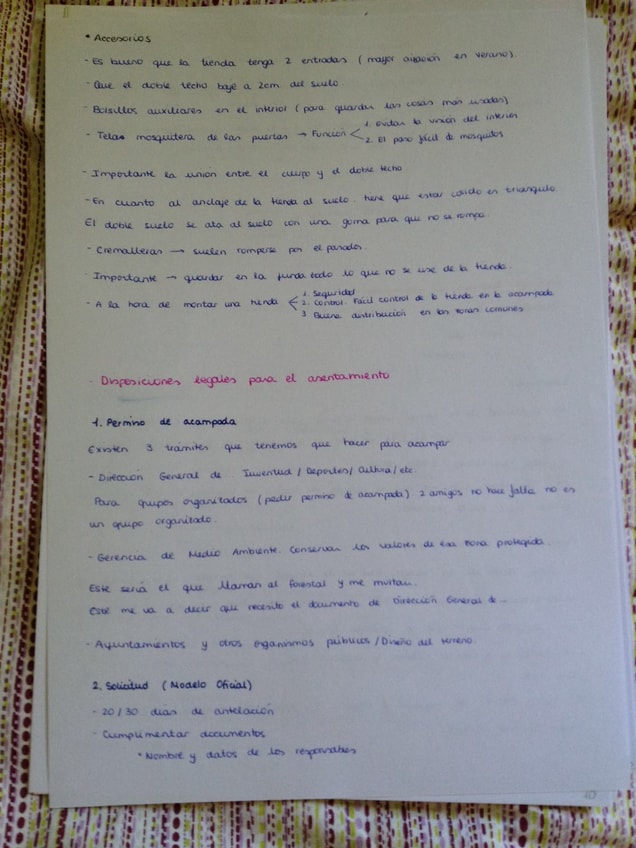 * Accesorios
- Es bueno que la tienda tenga 2 entradas (mayor aireación en verano)
- Que el doble techo baje a 2cm. del suelo
- Bolsillos auxiliares en el interior (para guardar las cosas más usadas)
- Telas mosquitera de las puertas → Función < 1. Evitar la visión del interior
2. El paso fácil de mosquitos
- Importante la unión entre el cuerpo y el doble techo
- En cuanto al anclaje de la tienda al suelo. tiene que estar cosido en triangulo.
El doble suelo se ata al suelo con una goma para que no se rompa.
- Cremalleras → suelen romperse por el pasador.
- Importante → guardar en la funda todo lo que no se use de la tienda.
- A la hora de montar una tienda < 1. Seguridad
2. Control. Fácil control de la tienda en la acampada
3. Buena distribución en las zonas comunes
- Disposiciones legales para el asentamiento
1. Permiso de acampada
Existen 3 trámites que tenemos que hacer para acampar
- Dirección General de Juventud / Deportes / Cultura / etc.
Para grupos organizados (pedir permiso de acampada) 2 amigos no hace falta no es
un grupo organizado.
- Gerencia de Medio Ambiente. Conservan los valores de esa zona protegida.
Este será el que llaman al forestal y me multan.
Este me va a decir que necesito el documento de Dirección General de...
- Ayuntamientos y otros organismos públicos / Diseño del terreno.
2. Solicitud (Modelo Oficial)
- 20/30 dias de antelación
- Cumplimentar documentos
* Nombre y datos de los responsables